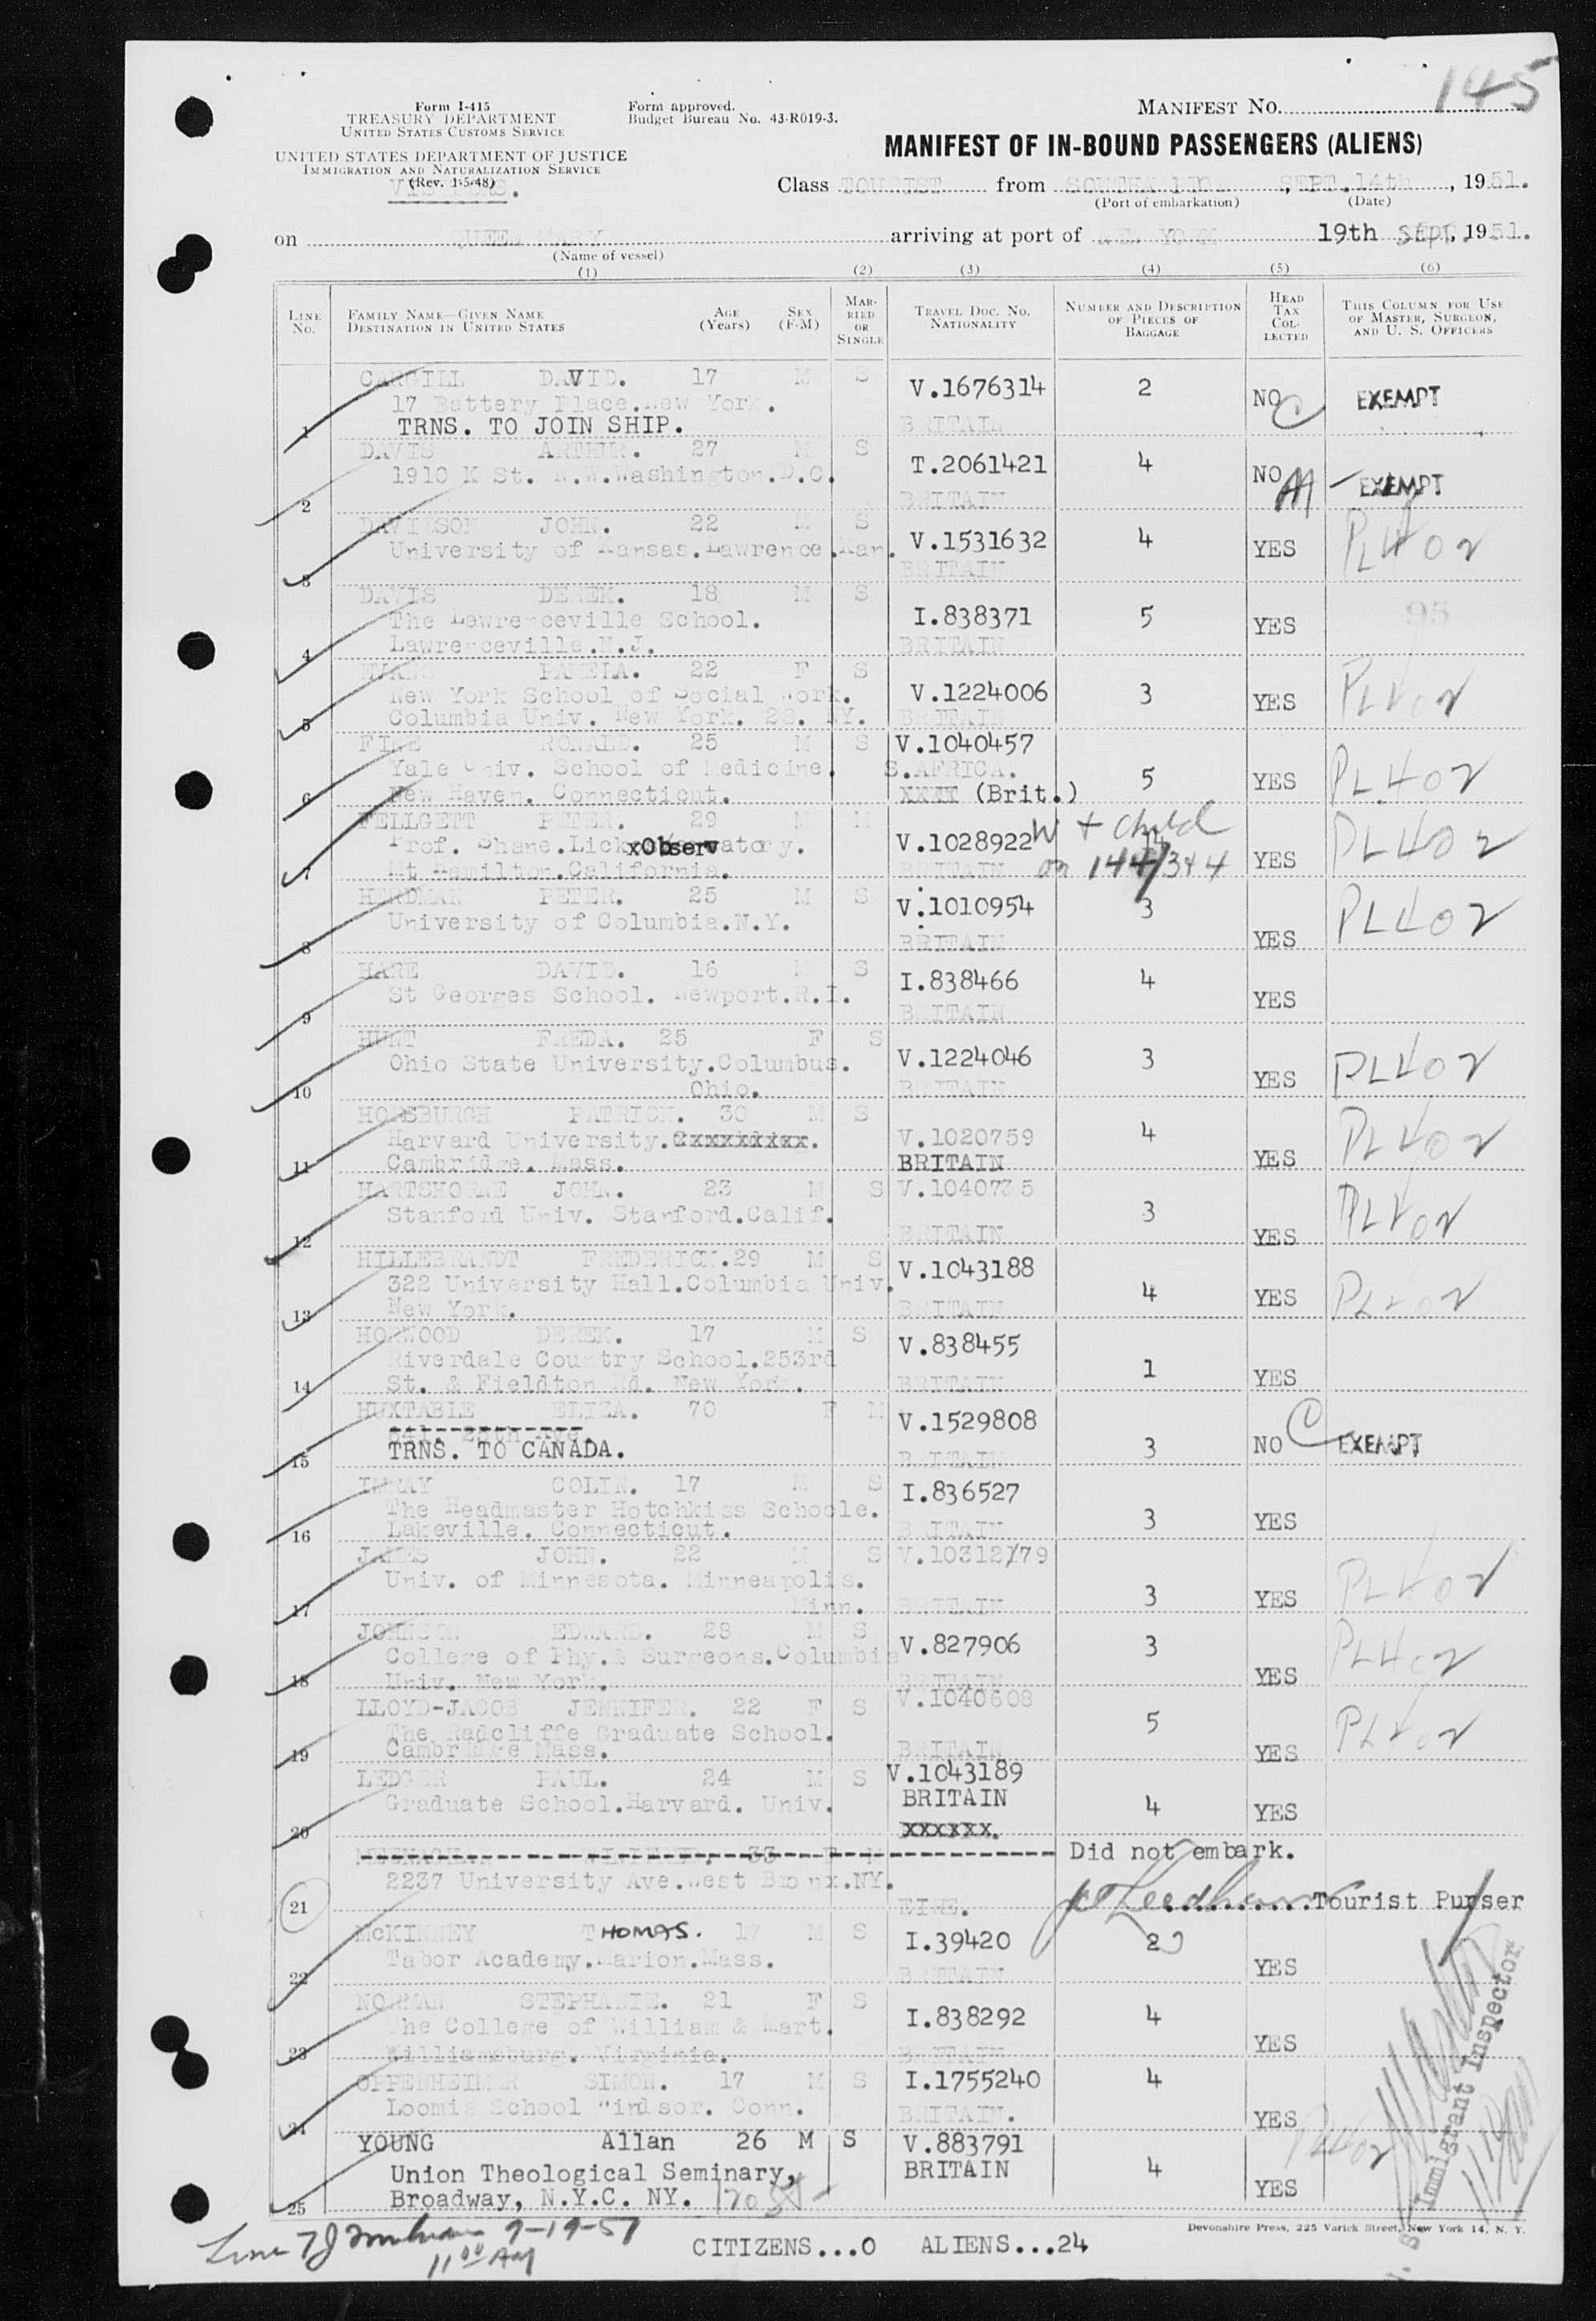 145
Form I-415
TREASURY DEPARTMENT
UNITED STATES CUSTOMS SERVICE
UNITED STATES DEPARTMENT OF JUSTICE
IMMIGRATION AND NATURALIZATION SERVICE
(Rev. 1-5-48)
Form approved.
Budget Bureau No. 43-R019-3.
MANIFEST NO.
MANIFEST OF IN-BOUND PASSENGERS (ALIENS)
Class TOURIST from SOUTHAMPTON, SEPT.14th, 1951.
(Port of embarkation) (Date)
on QUEEN MARY arriving at port of NEW YORK 19th SEPT, 1951.
(Name of vessel)
(1) (2) (3) (4) (5) (6)
LINE No. FAMILY NAME—GIVEN NAME DESTINATION IN UNITED STATES AGE (Years) SEX (F-M) MARRIED OR SINGLE TRAVEL DOC. NO. NATIONALITY NUMBER AND DESCRIPTION OF PIECES OF BAGGAGE HEAD TAX COLLECTED THIS COLUMN FOR USE OF MASTER, SURGEON, AND U. S. OFFICERS
CARGILL DAVID. 17 M S V.1676314 2 NO C EXEMPT
17 Battery Place.New York.
1 TRNS. TO JOIN SHIP. BRITAIN
DAVIS ARTHUR. 27 M S T.2061421 4 NO EXEMPT
1910 K St. N.W.Washington.D.C.
2 BRITAIN
DAVIDSON JOHN. 22 M S V.1531632 4 YES PL402
University of Kansas.Lawrence.Kan.
3 BRITAIN
DAVIS DEREK. 18 M S I.838371 5 YES 95
The Lawrenceville School.
4 Lawrenceville.N.J. BRITAIN
EVANS PAMELA. 22 F S V.1224006 3 YES PL402
New York School of Social Work.
5 Columbia Univ. New York. 28. NY. BRITAIN
FINE RONALD. 25 M S V.1040457
Yale Univ. School of Medicine. S.AFRICA. 5 YES PL402
6 New Haven. Connecticut. XXXX (Brit.)
FELLGETT PETER. 29 M M V.1028922 W + child 14 YES PL402
Prof. Shane.Lick xObservatory. on 144/344
7 Mt Hamilton.California. BRITAIN
HERDMAN PETER. 25 M S V.1010954 3 YES PL402
University of Columbia.N.Y.
8 BRITAIN
HARE DAVID. 16 M S I.838466 4 YES
St Georges School. Newport.R.I.
9 BRITAIN
HUNT FREDA. 25 F S V.1224046 3 YES PL402
Ohio State University.Columbus.
10 Ohio. BRITAIN
HORSBURGH PATRICK. 30 M S V.1020759 4 YES PL402
Harvard University.
11 Cambridge. Mass. BRITAIN
HARTSHORNE JOHN. 23 M S V.1040735 3 YES PL402
Stanford Univ. Stanford.Calif.
12 BRITAIN
HILLEBRANDT FREDERICK.29 M S V.1043188 4 YES PL402
322 University Hall.Columbia Univ.
13 New York. BRITAIN
HORWOOD DEREK. 17 M S V.838455 1 YES
Riverdale Country School.253rd
14 St. & Fieldton Rd. New York. BRITAIN
HUXTABLE ELIZA. 70 F M V.1529808 3 NO C EXEMPT
15 TRNS. TO CANADA. BRITAIN
IMRAY COLIN. 17 M S I.836527 3 YES
The Headmaster Hotchkiss Schoole.
16 Lakeville. Connecticut. BRITAIN
JAMES JOHN. 22 M S V.10312/79 3 YES PL402
Univ. of Minnesota. Minneapolis.
17 Minn. BRITAIN
JOHNSON EDWARD. 28 M S V.827906 3 YES PL402
College of Phy.& Surgeons.Columbia
18 Univ. New York. BRITAIN
LLOYD-JACOB JENNIFER. 22 F S V.1040608 5 YES PL402
The Radcliffe Graduate School.
19 Cambridge Mass. BRITAIN
LEDGER PAUL. 24 M S V.1043189 4 YES
Graduate School.Harvard. Univ. BRITAIN
20 XXXXXX.
WINIFRED. 33 F M Did not embark.
2237 University Ave.West Bronx.NY.
21 EIRE. Tourist Purser
McKINNEY THOMAS. 17 M S I.39420 2 YES
Tabor Academy.Marion.Mass.
22 BRITAIN
NORMAN STEPHANIE. 21 F S I.838292 4 YES
The College of William & Mart.
23 Williamsburg. Virginia. BRITAIN
OPPENHEIMER SIMON. 17 M S I.1755240 4 YES
Loomis School Windsor. Conn.
24 BRITAIN.
YOUNG Allan 26 M S V.883791 4 YES PL402
Union Theological Seminary, BRITAIN
25 Broadway, N.Y.C. NY. 120 St
Immigrant Inspector
Devonshire Press, 225 Varick Street, New York 14, N. Y.
Line 7 9-19-51
11 00 AM
CITIZENS...0 ALIENS...24